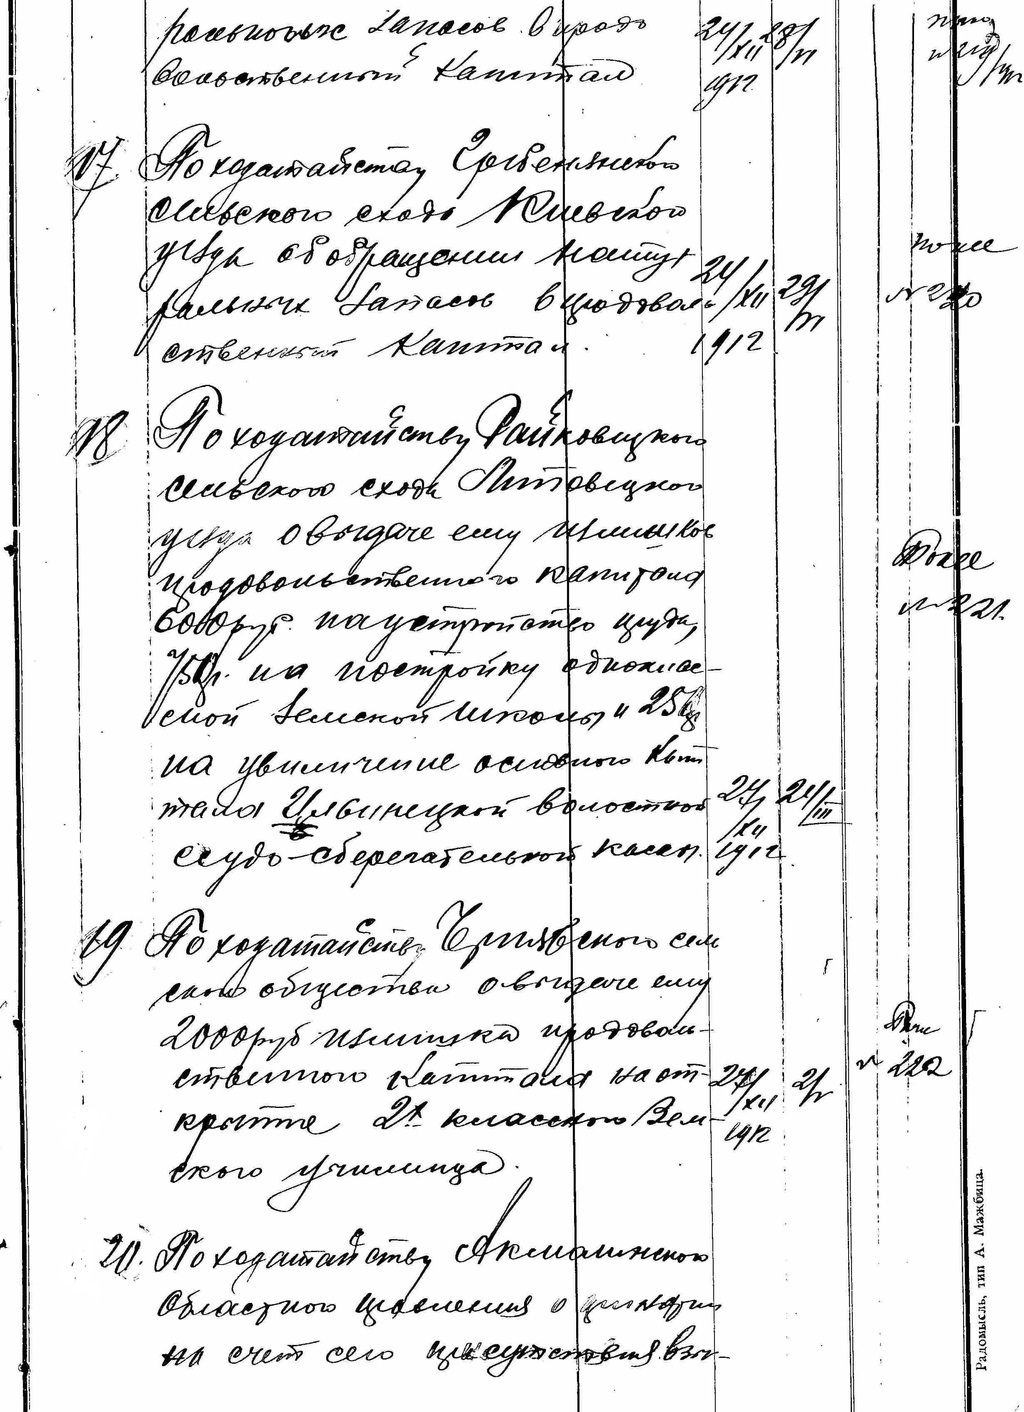 ральныхъ запасовъ в продо
вольственный капитал
24/XII 28/VI
1912
17 По ходатайству Гребенянского
сельского схода Киевского
уезда об обращении натур
ральных запасов в продоволь
ственный капитал.
24/XII 29/VI
1912
тоже
№ 220
18 По ходатайству Райковецкого
сельского схода Литовецкого
уезда о выдаче ему излишков
продовольственного капитала
6000 руб. на устройство пруда,
750 р. на постройку одноклас-
сной Земской школы и 250 р
на увеличение основного капи
тала Ильинецкой волостной
ссудо-сберегательной кассы.
24/XII 24/III
1912
Тоже
№ 221.
19 По ходатайству Чернявского сель
ского общества о выдаче ему
2000 руб излишка продоволь-
ственного капитала на от-
крытие 2х классного Зем-
ского училища.
27/XII 2/V
1912
№ 222
20. По ходатайству Акмолинского
Областного правления о принятии
на счет сего присутствия взы-
Радомысль, тип А. Мажбица.